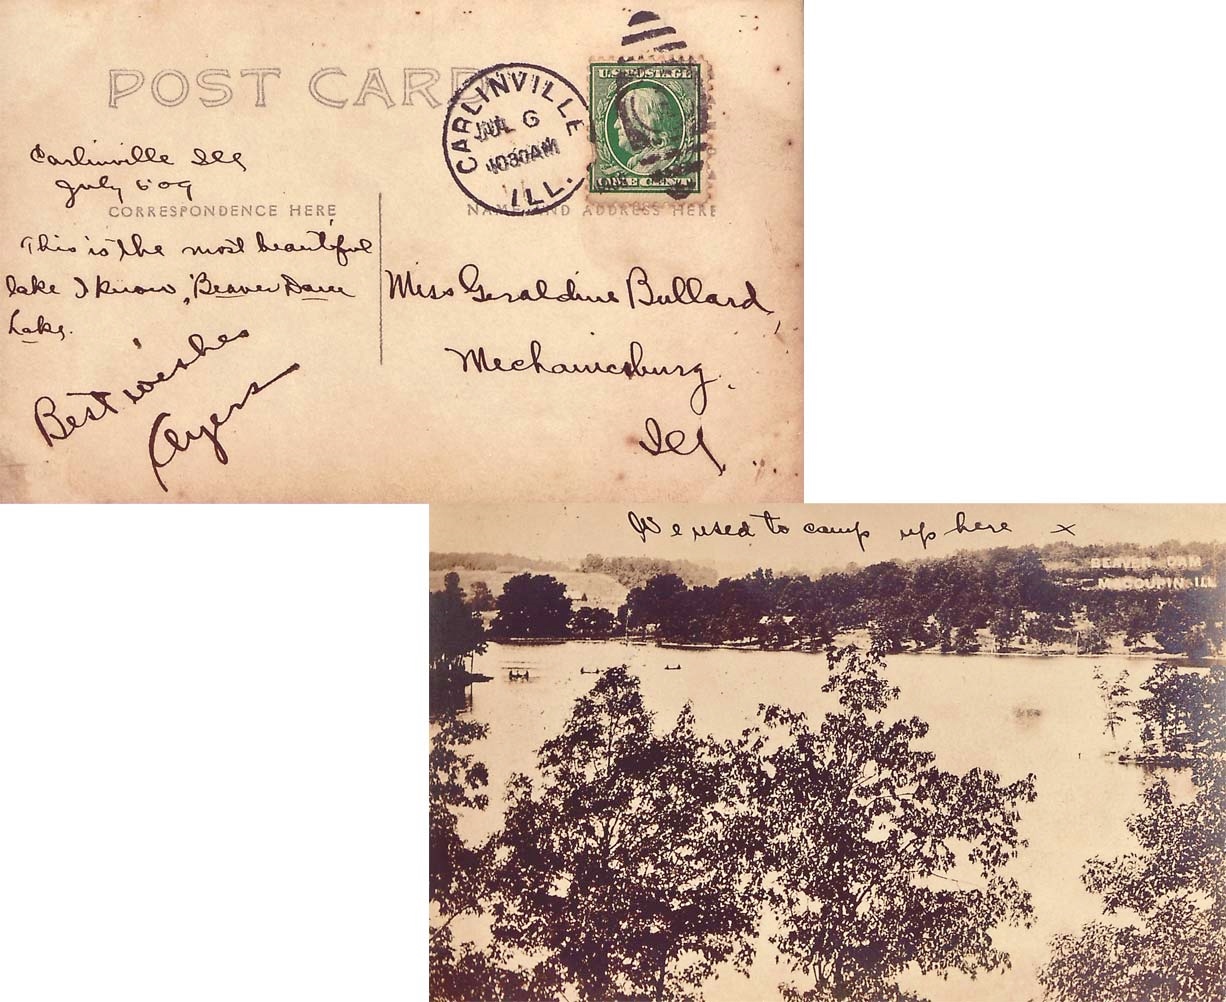 POST CARD
CARLINVILLE
JUL 6
1030AM
ILL.
U.S. POSTAGE
ONE CENT
Carlinville Ill
July 6 09
CORRESPONDENCE HERE
NAME AND ADDRESS HERE
This is the most beautiful
lake I know, "Beaver Dam
Lake.
Best wishes
Ayers
Miss Geraldine Bullard,
Mechanicsburg.
Ill.
We used to camp up here x
BEAVER DAM
MACOUPIN ILL